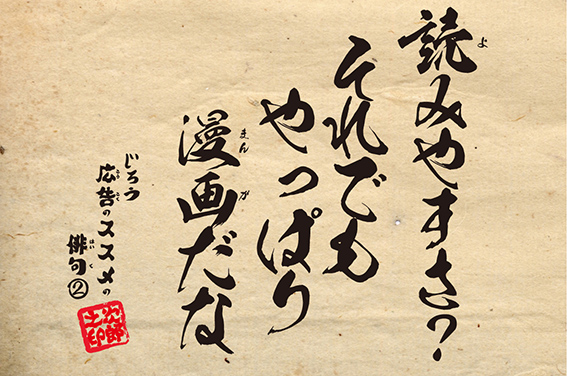 読みやすさ?
それでも
やっぱり
漫画だな
じろう
広告のススメの
俳句②
次郎之印